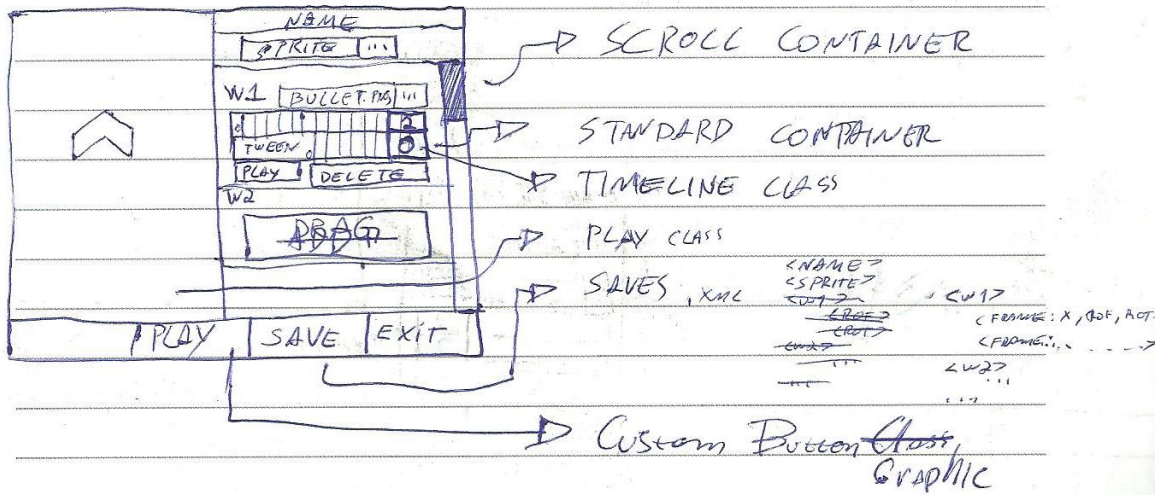 NAME
SPRITE ...
W1 BULLET.PNG ...
2
TWEEN 0
PLAY DELETE
W2
DRAG
PLAY SAVE EXIT
SCROLL CONTAINER
STANDARD CONTAINER
TIMELINE CLASS
PLAY CLASS
SAVES .XML
<NAME>
<SPRITE>
<W1>
<ROF>
<ROT>
<W2>
...
...
<W1>
<FRAME: X, ROF, ROT.
<FRAME: ... >
<W2>
...
...
Custom Button Class,
GRAPHIC